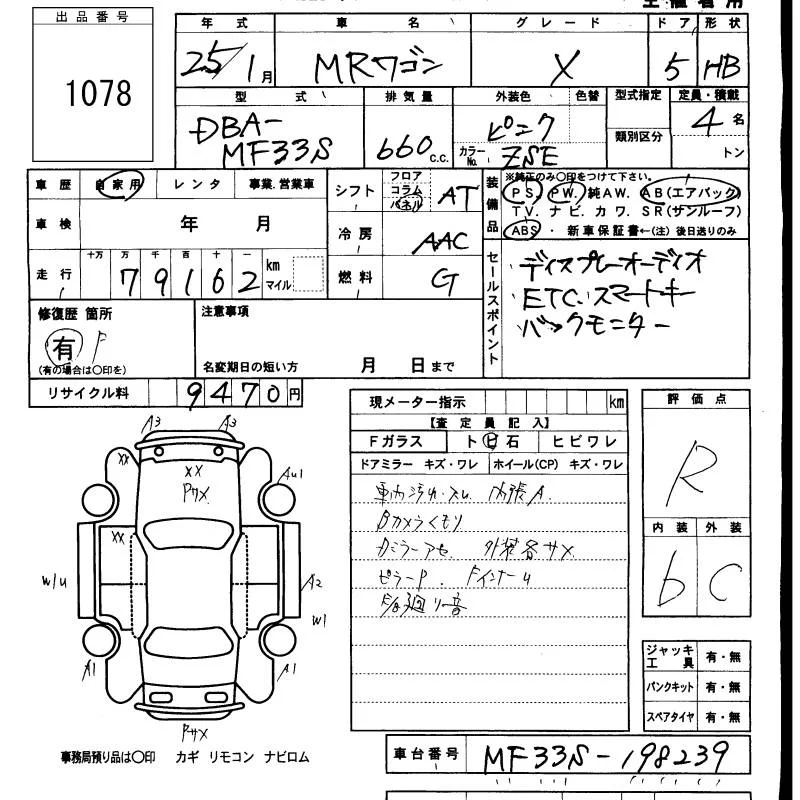 出品番号
1078
年式 車名 グレード ドア 形状
25/1月 MRワゴン X 5 HB
型式 排気量 外装色 色替 型式指定 定員・積載
DBA-MF33S 660c.c. ピンク
カラーNo. ZSE
類別区分
4名
トン
車歴 自家用 レンタ 事業.営業車
車検 年 月
走行 十万 万 千 百 十 一
79162 km マイル
シフト フロア コラム パネル AT
冷房 AAC
燃料 G
装備品
※純正のみ○印をつけて下さい。
PS. PW. 純AW. AB(エアバック)
TV. ナビ. カワ. SR(サンルーフ)
ABS・ 新車保証書←(注) 後日送りのみ
セールスポイント
ディスプレーオーディオ
ETC.スマートキー
バックモニター
修復歴 箇所
有 F
(有の場合は○印を)
注意事項
名変期日の短い方 月 日まで
リサイクル料 9470円
現メーター指示 km
【査定員記入】
Fガラス トビ石 ヒビワレ
ドアミラー キズ・ワレ ホイール(CP) キズ・ワレ
車内汚れ・スレ 内張A.
Bカメラくもり
Dミラーアセ 外装各サメ
ピラーP. Fインナーu
評価点
R
内装 外装
b C
ジャッキ 工具 有・無
パンクキット 有・無
スペアタイヤ 有・無
A3 A3
XX XX
Pサメ
Au1
XX
W/U A2
W1
A1 A1
Pサメ
事務局預り品は○印 カギ リモコン ナビロム
車台番号 MF33S-198239